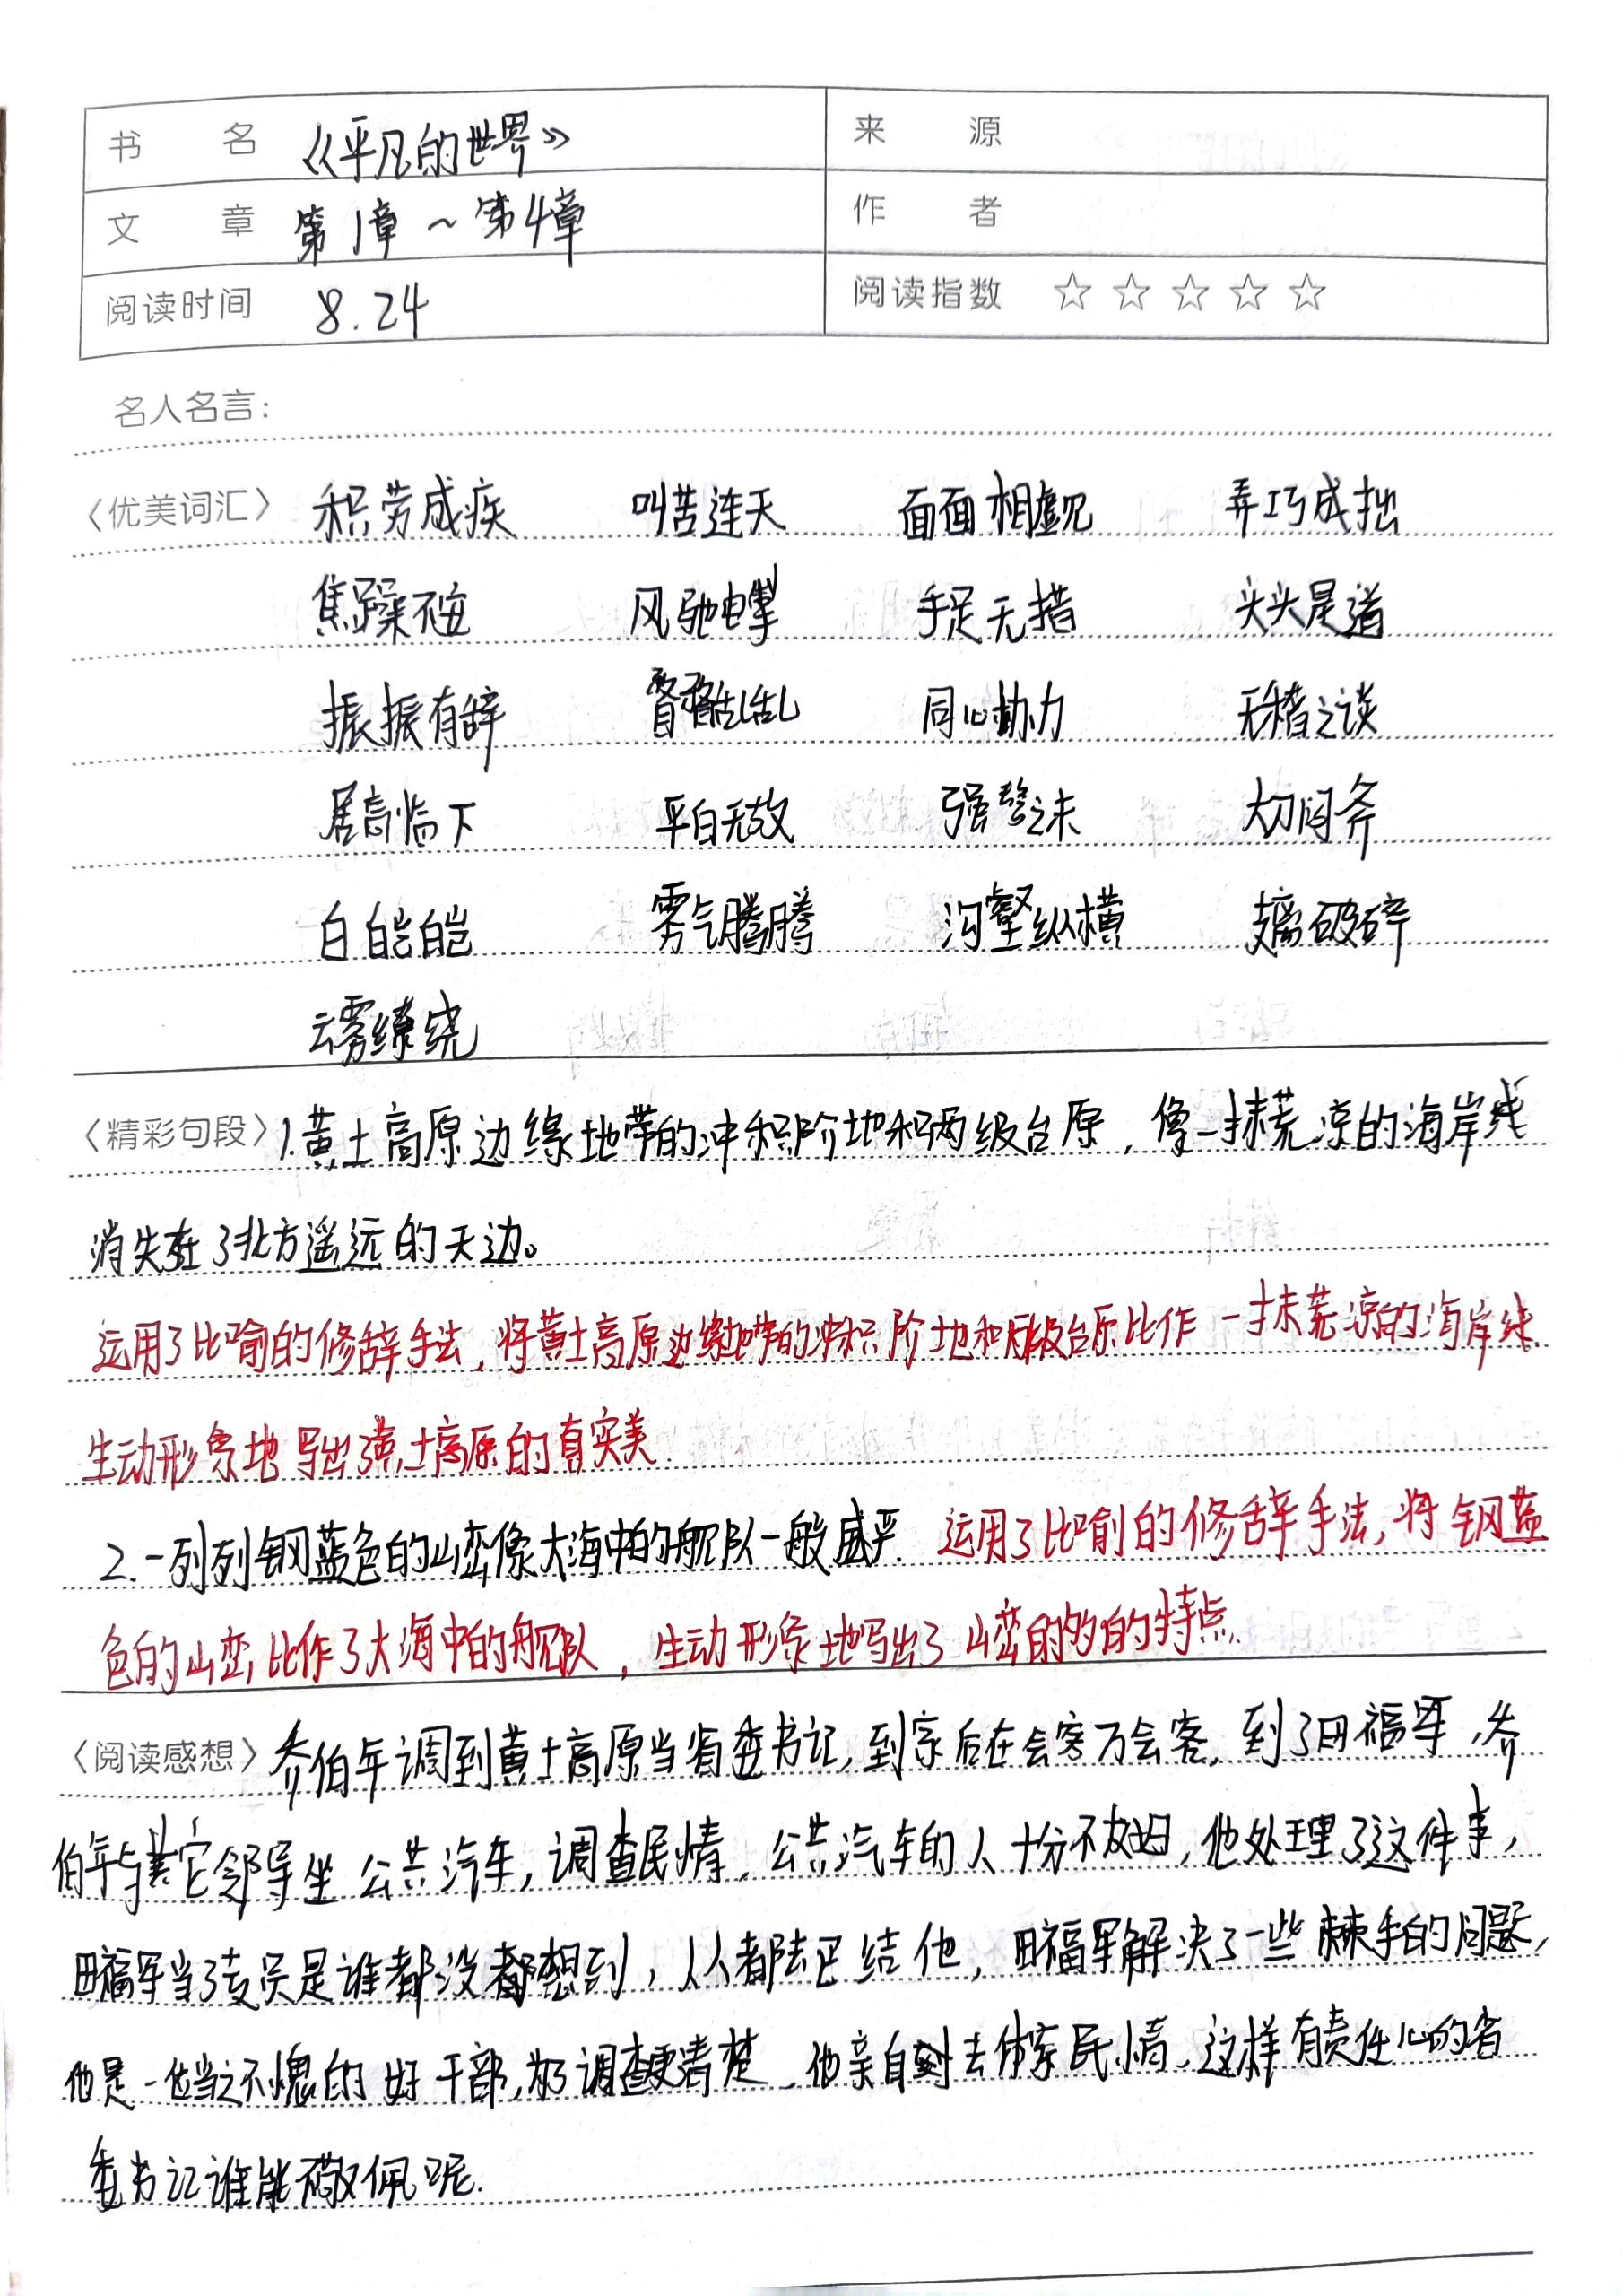 书 名 《平凡的世界》 来 源
文 章 第1章~第4章 作 者
阅读时间 8.24 阅读指数 ☆☆☆☆☆
名人名言:
〈优美词汇〉 积劳成疾 叫苦连天 面面相觑 弄巧成拙
焦躁不安 风驰电掣 手足无措 头头是道
振振有辞 同心协力 无稽之谈
居高临下 平白无故 强弩之末 大刀阔斧
白皑皑 雾气腾腾 沟壑纵横 支离破碎
云雾缭绕
〈精彩句段〉 1.黄土高原边缘地带的冲积阶地和两级台原,像一抹荒凉的海岸线
消失在了北方遥远的天边。
运用了比喻的修辞手法,将黄土高原边缘地带的冲积阶地和两级台原比作一抹荒凉的海岸线
生动形象地写出了黄土高原的真实美.
2.一列列钢蓝色的山峦像大海中的舰队一般威严. 运用了比喻的修辞手法,将钢蓝
色的山峦比作了大海中的舰队,生动形象地写出了山峦的的特点.
〈阅读感想〉 乔伯年调到黄土高原当省委书记,到家后在会客万会客,到了田福军,乔
伯年与其它领导坐公共汽车,调查民情,公共汽车的人十分不友好,他处理了这件事,
田福军当了专员是谁都没都想到,人人都去巴结他,田福军解决了一些棘手的问题,
他是一位当之不愧的好干部,为了调查更清楚,他亲自到去体察民情,这样有责任心的省
委书记谁能不敬佩呢.